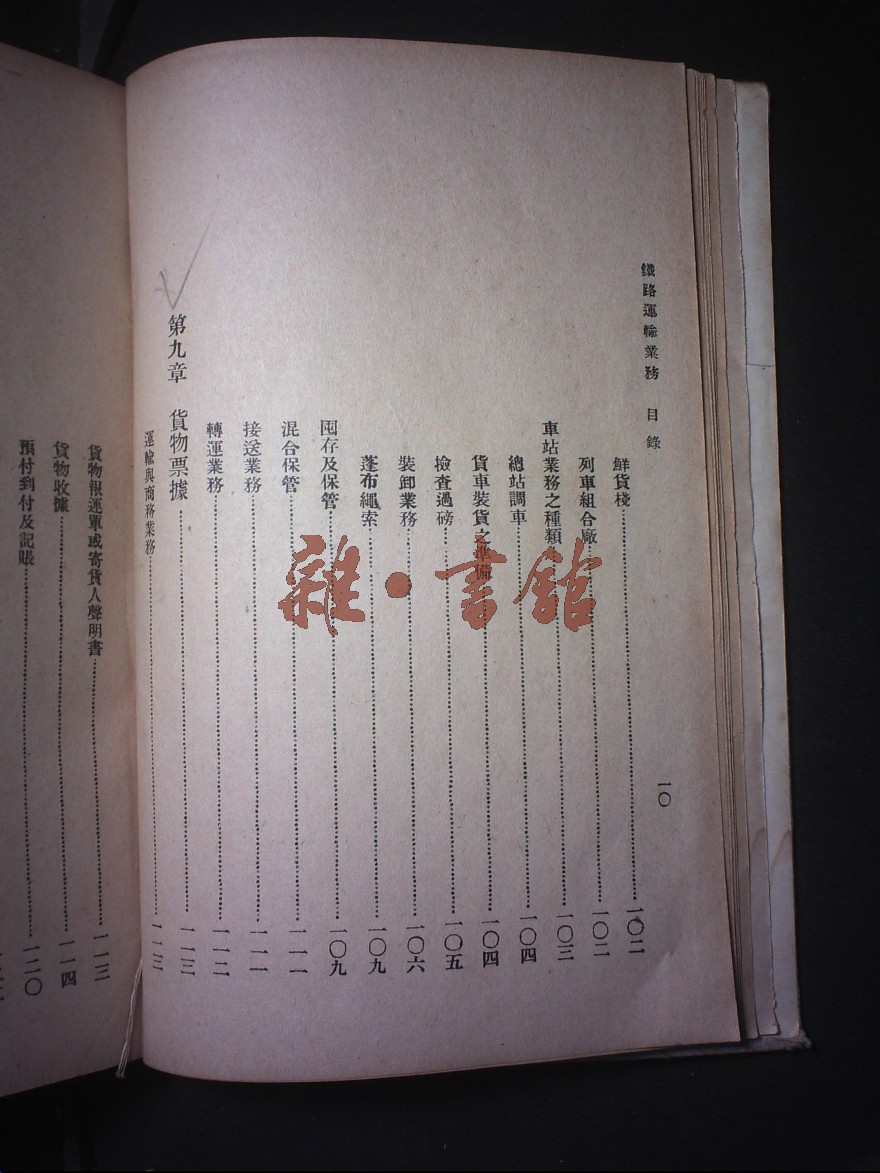 鐵路運輸業務 目錄
一〇
鮮貨棧……一〇二
列車組合廠……一〇二
車站業務之種類……一〇三
總站調車……一〇四
貨車裝貨之準備……一〇四
檢查過磅……一〇五
裝卸業務……一〇六
蓬布繩索……一〇九
囤存及保管……一〇九
混合保管……一一一
接送業務……一一一
轉運業務……一一二
第九章 貨物票據……一一三
運輸與商務業務……一一三
貨物報運單或寄貨人聲明書……一一三
貨物收據……一一四
預付到付及記賬……一二〇
雜·書館